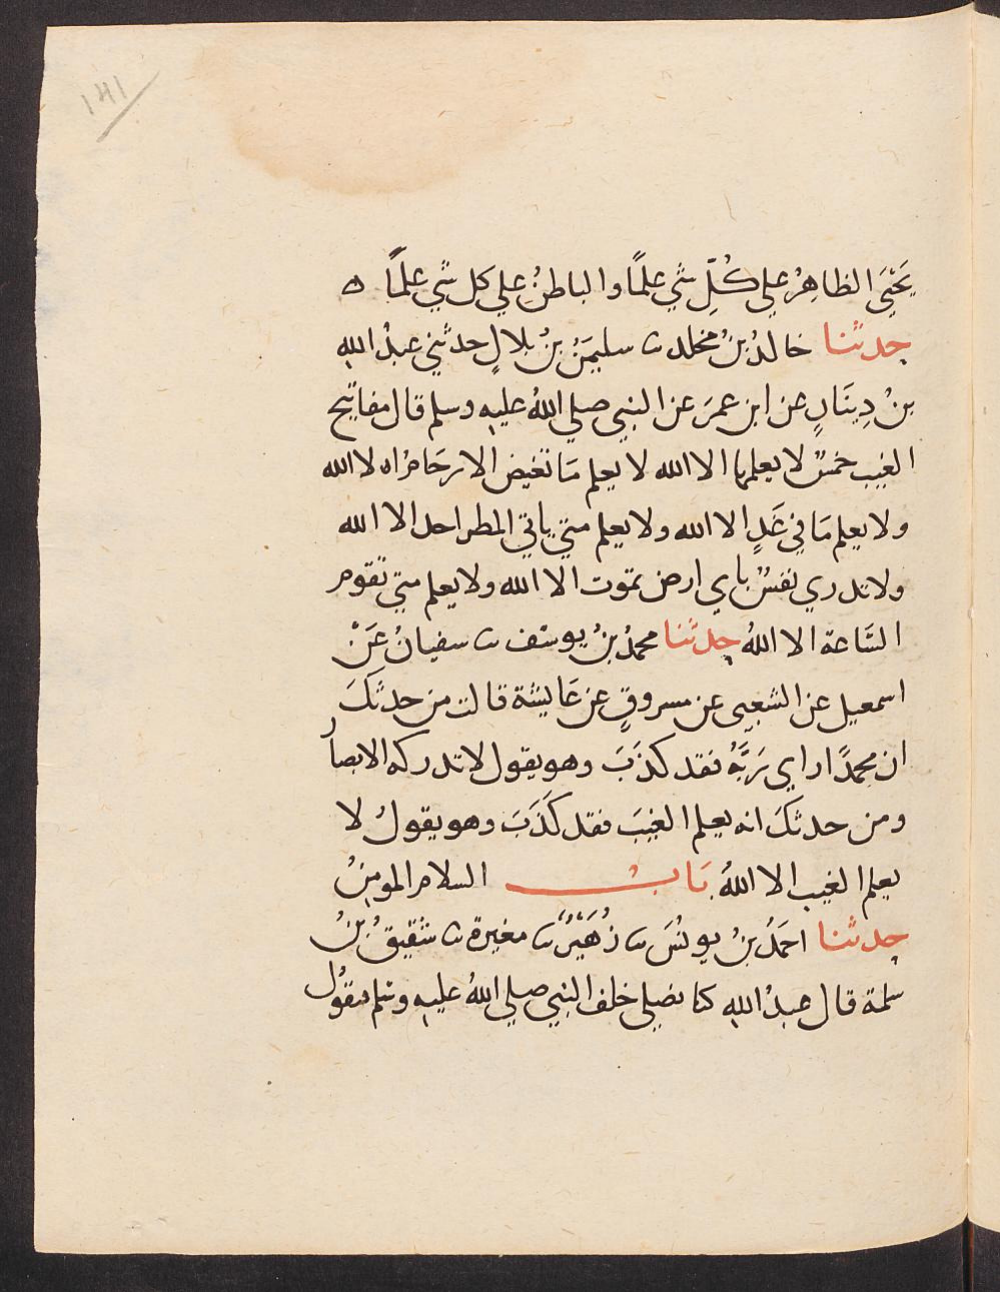 ١٣١
يَحْيَى الظاهِرُ علي كُلِّ شي علمًا والباطنُ علي كل شي علمًا ه
حدثنا خالدُ بنُ مخلد ثنا سليمَنُ بنُ بلالٍ حدثني عبدُ اللهِ
بنُ دِينَارٍ عن ابن عمرَ عن النبي صلي اللهُ عليه وسلم قال مفاتيح
الغيب خمسٌ لا يعلمها الا الله لا يعلم مَا تغيض الارحَام الا الله
ولا يعلم مَا في غَدٍ الا الله ولا يعلم متي ياتي المطر احد الا الله
ولا تدري نفسٌ باي ارض تموت الا الله ولا يعلم متي تقوم
السَّاعة الا اللهُ حدثنا محمدُ بنُ يوسف ثنا سفيانُ عَنْ
اسمعيل عن الشعبي عن مسروقٍ عن عَايشة قالت من حدثكَ
ان محمدًا راي رَبَّهُ فقد كذَبَ وهو يقول لا تدركه الابصار
ومن حدثكَ انه يعلم الغيبَ فقد كَذَبَ وهو يقولُ لا
يعلم الغيب الا اللهُ بَابُ السلام المومِنُ
حدثنا احمَدُ بنُ يونُسَ ثنا زُهَيْرٌ ثنا مغيرة ثنا شقيقُ بنُ
سلمة قال عبدُ اللهِ كنا نصلي خلف النبي صلي اللهُ عليهِ وسلم فنقوُل